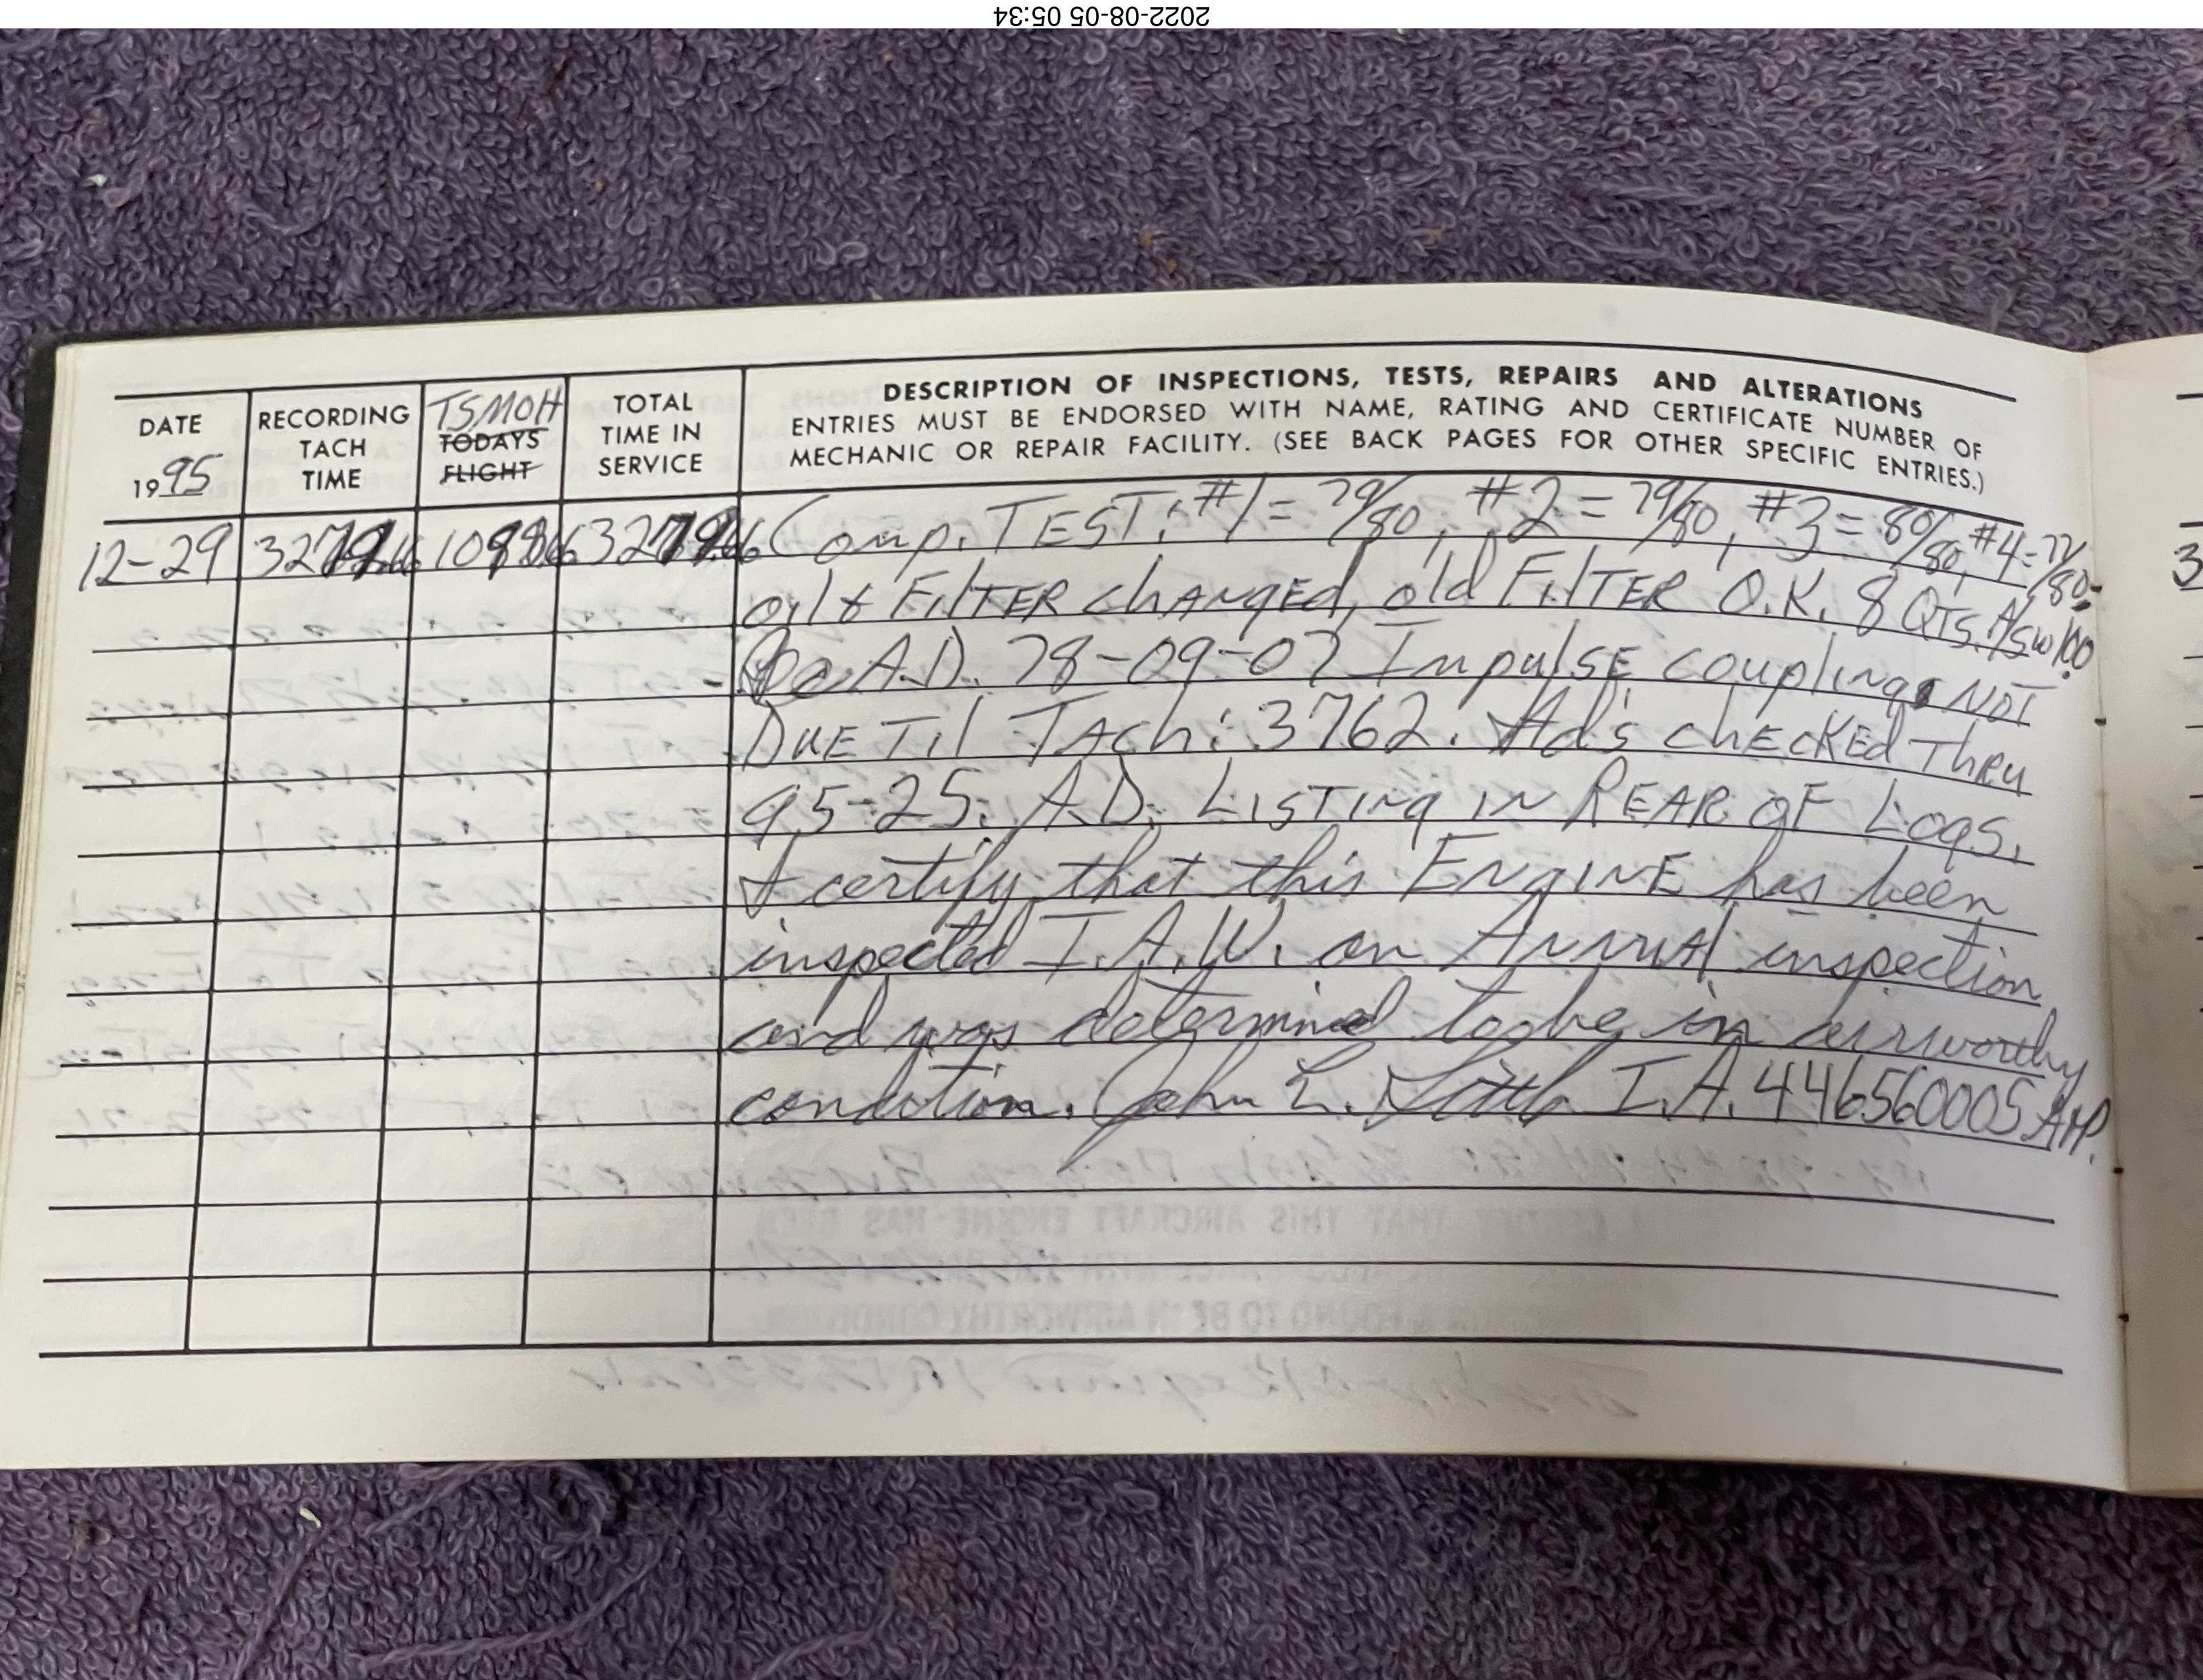 2022-08-05 05:34
DATE
1995
RECORDING
TACH
TIME
TSMOH
TODAYS
FLIGHT
TOTAL
TIME IN
SERVICE
DESCRIPTION OF INSPECTIONS, TESTS, REPAIRS AND ALTERATIONS
ENTRIES MUST BE ENDORSED WITH NAME, RATING AND CERTIFICATE NUMBER OF
MECHANIC OR REPAIR FACILITY. (SEE BACK PAGES FOR OTHER SPECIFIC ENTRIES.)
12-29 Comp. TEST: #1 = 79/80, #2 = 79/80, #3 = 80/80, #4 = 77/80.
oil & FilTER changed, old FilTER O.K. 8 QTS. A/SW100
A.D. 78-09-07 Impulse coupling NOT
DUE Til TAch: 3762. Ad's checked Thru
95-25. A.D. LISTING IN REAR OF LOGS.
I certify that this ENGINE has been
inspected I.A.W. an Annual inspection
and was determined to be in airworthy
condition. John L. I.A. 446560005 A&P.
3